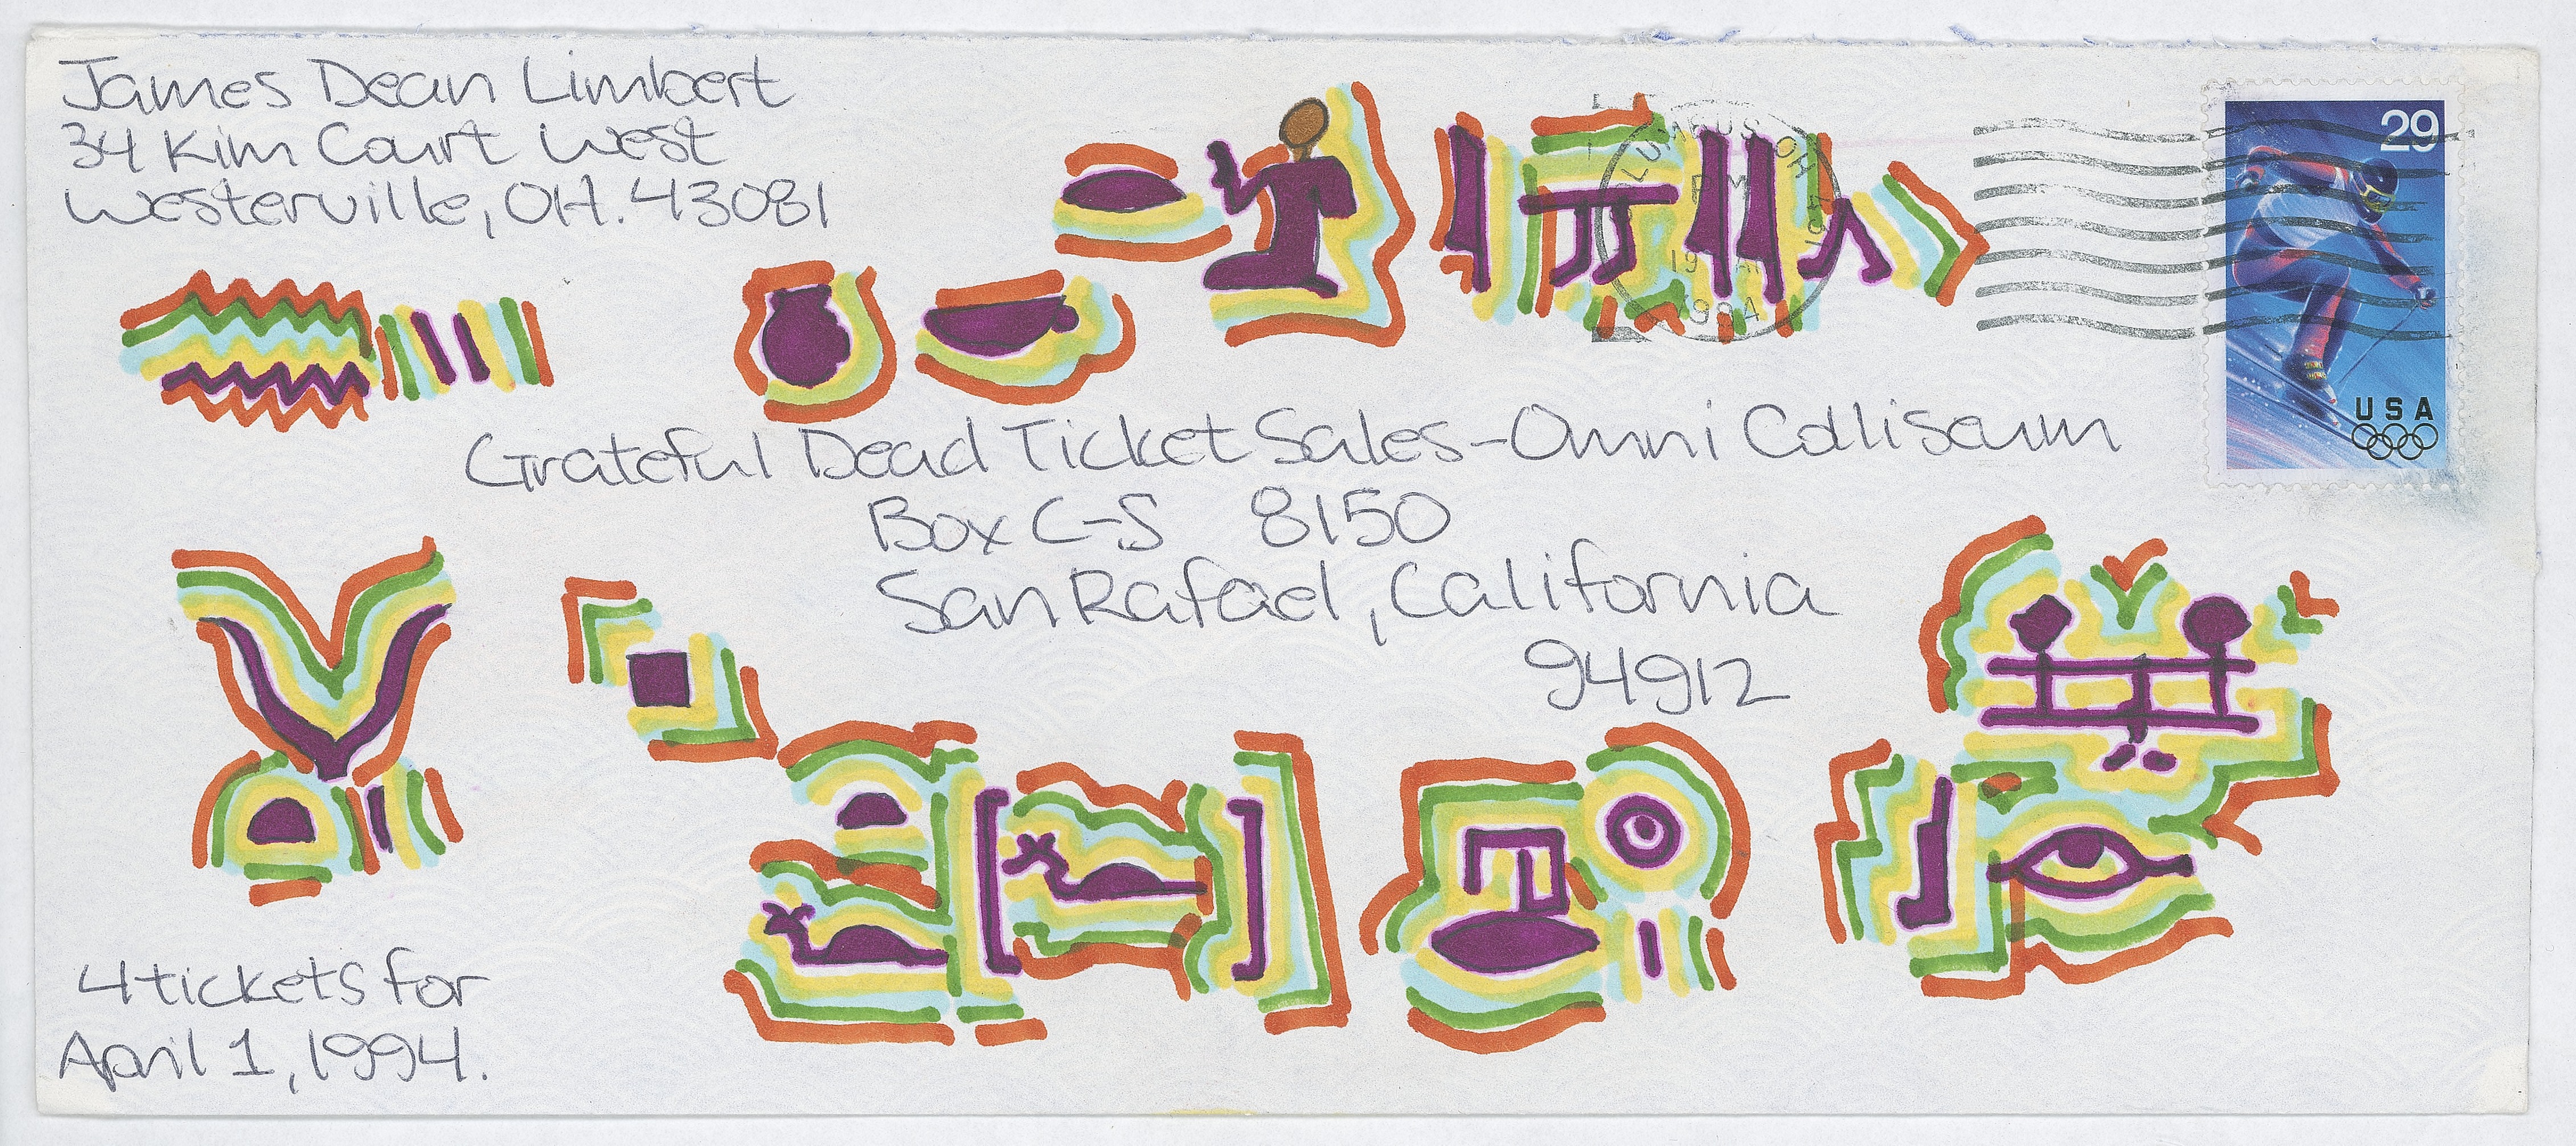 James Dean Limbert
34 Kim Court West
Westerville, OH. 43081
COLUMBUS OH 431
PM
1994
29
USA
Grateful Dead Ticket Sales-Omni Colliseum
Box C-S 8150
San Rafael, California
94912
4 tickets for
April 1, 1994.